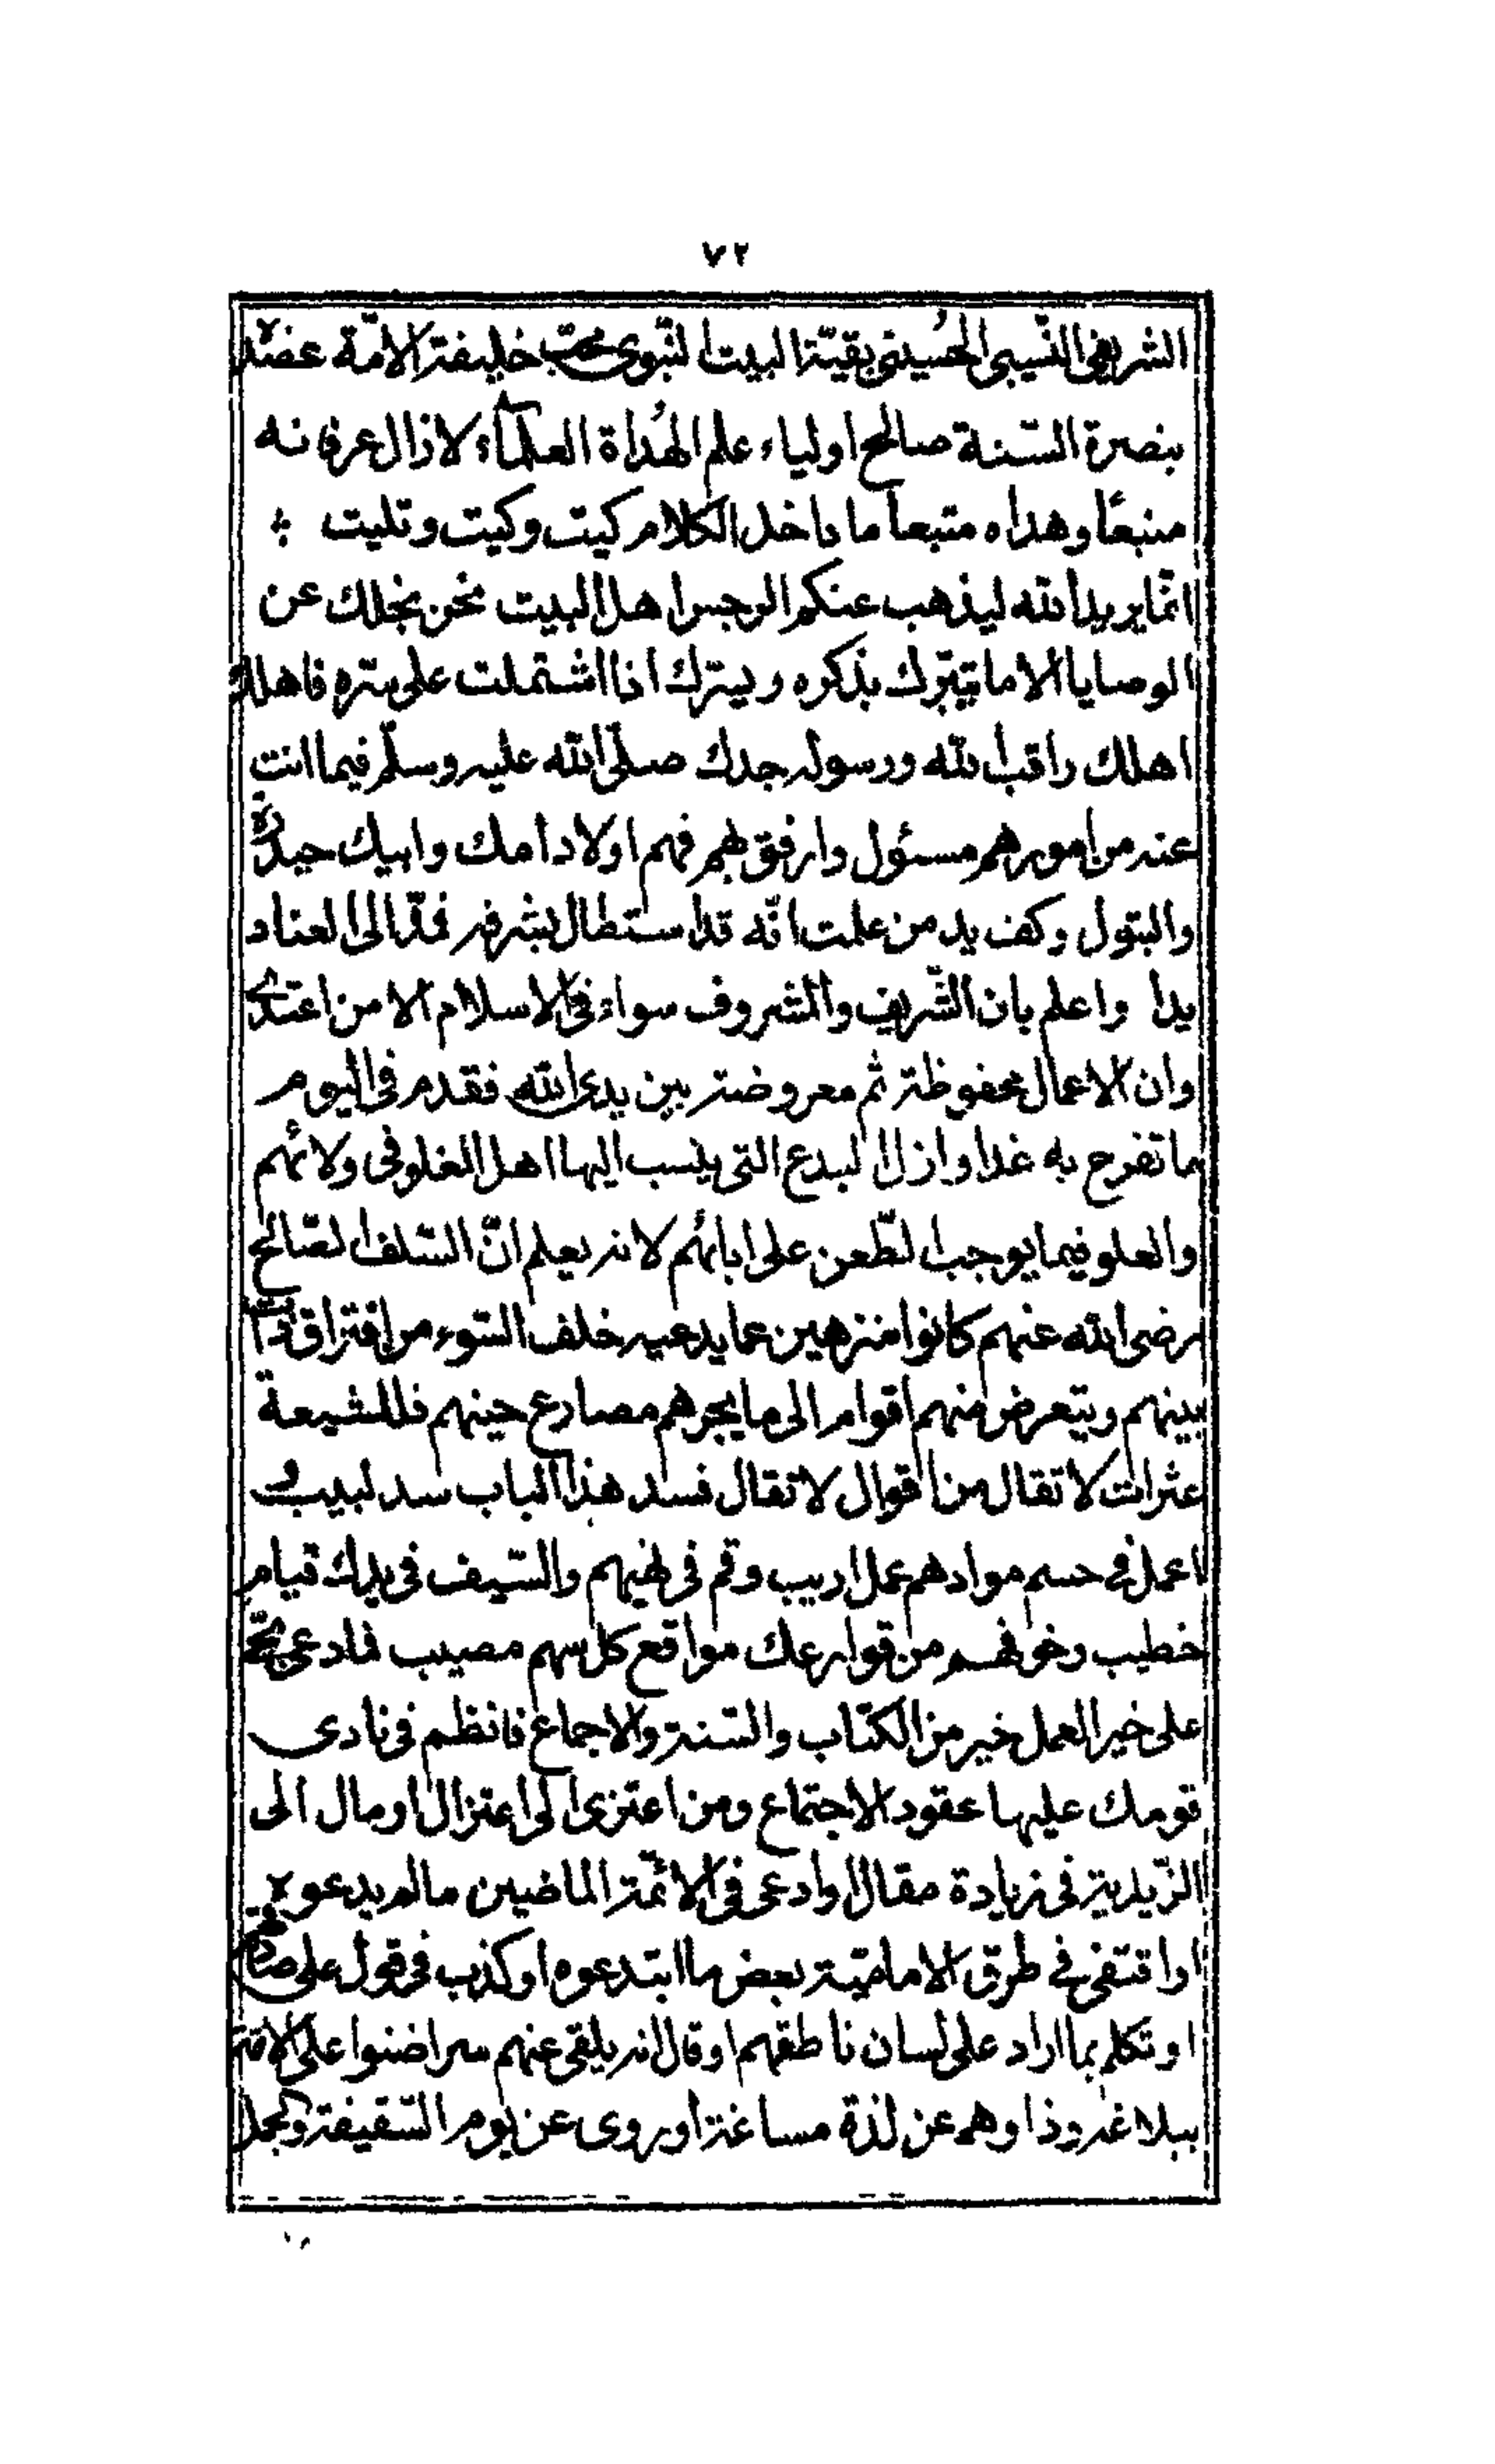 ٧٢
الشريفى النسيبى الحُسينى بقيّة البيت النّبوى محبّ خليفة الامّة عضده
بنصرة السّنة صالح اولياء علم الهُداة العلماء لا زال عرفانه
منبعًا وهداه متبعا ما داخل الكلام كيت وكيت وتليت
انّما يريد الله ليذهب عنكم الرجس اهل البيت نحن نجلك عن
الوصايا الا ما يتبرّك بذكره ويسرك اذا اشتملت على سرّه فاهلك
اهلك راقب الله ورسوله جدك صلّى الله عليه وسلّم فيما انت
عنه من امورهم مسئول وارفق بهم فهم اولاد امك وابيك حيدرة
والبتول وكف يد من علمت انّه قد استطال بشرفه فمدّ الى العناد
يدا واعلم بان الشّريف والمشروف سواء فى الاسلام الا من اعتدى
وان الاعمال محفوظة ثم معروضة بين يدى الله فقدم فى اليوم
ما تفرح به غدا وازل البدع التى ينسب اليها اهل الغلو فى ولائهم
والعلو فيما يوجب الطّعن على ابائهم لانه يعلم انّ السّلف الصّالح
رضى الله عنهم كانوا منزهين عما يدعيه خلف السّوء من افتراق ذات
بينهم ويتعرض منهم اقوام الى ما يجرهم مصارع حينهم فللشيعة
عثرات لا تقال من اقوال لا تقال فسد هذا الباب سد لبيب و
اعمل فى حسم موادهم عمل اريب وقم فى نهيهم والسّيف فى يدك قيام
خطيب وخوفهم من قوارعك مواقع كل سهم مصيب فما دعى بحىّ
على خير العمل خير من الكتاب والسّنة والاجماع فانظم فى نادى
قومك عليها عقود الاجتماع ومن اعتزى الى اعتزال او مال الى
الزّيدية فى زيادة مقال او ادعى فى الائمّة الماضين ما لم يدعوه
او اقتفى فى طرق الاماميّة بعض ما ابتدعوه او كذب فى قول على صادقهم
او تكلم بما اراد على لسان ناطقهم او قال انه يلقى عنهم سرا ضنوا على الامّة
ببلاغه وذا وهم عن لذة مساغه او روى عن يوم السّقيفة والجمل